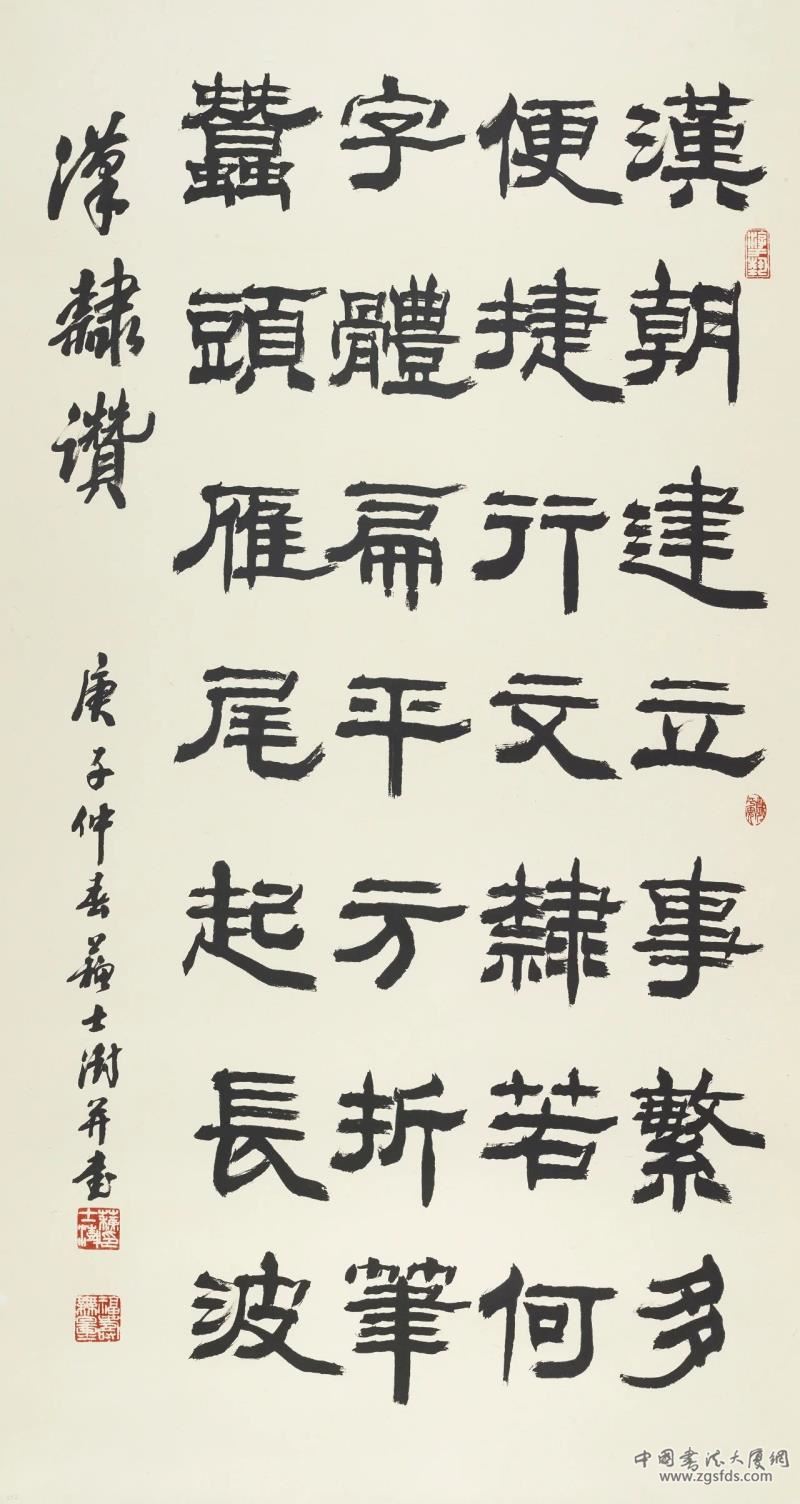 漢朝建立事繁多
便捷行文隸若何
字體扁平方折筆
蠶頭雁尾起長波
漢隸讚
庚子仲春蘇士澍并書
蘇士澍印
福壽無量
中国书法大厦網
www.zgsfds.com